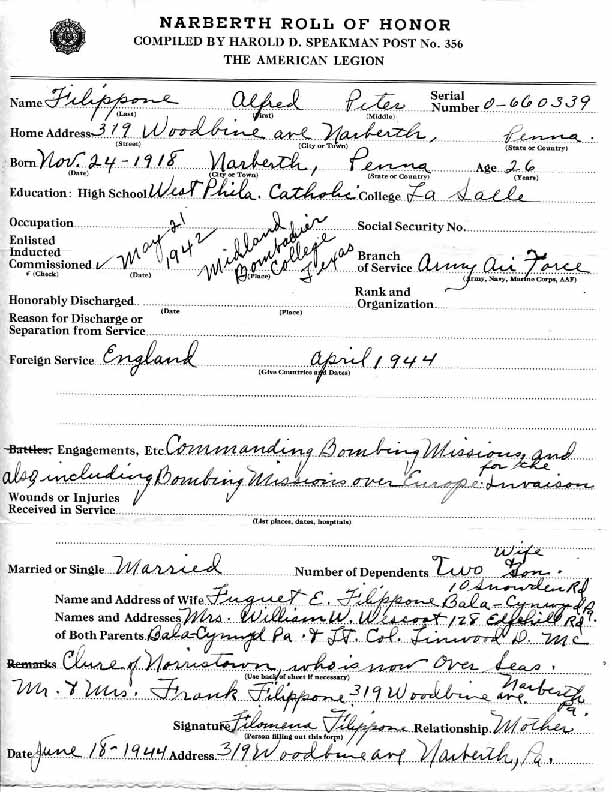 NARBERTH ROLL OF HONOR
COMPILED BY HAROLD D. SPEAKMAN POST No. 356
THE AMERICAN LEGION
Name Filippone Alfred Peter Serial Number O-660339
(Last) (First) (Middle)
Home Address 319 Woodbine ave Narberth, Penna.
(Street) (City or Town) (State or Country)
Born Nov. 24-1918 Narberth, Penna Age 26
(Date) (City or Town) (State or Country) (Years)
Education: High School West Phila. Catholic College La Salle
Occupation Social Security No.
Enlisted
Inducted
Commissioned ✓ May 21 1942 Midland Bombadier College Texas Branch of Service Army Air Force
✓ (Check) (Date) (Place) (Army, Navy, Marine Corps, AAF)
Honorably Discharged Rank and Organization
(Date (Place)
Reason for Discharge or
Separation from Service
Foreign Service England April 1944
(Give Countries and Dates)
Battles, Engagements, Etc. Commanding Bombing Missions and
also including Bombing Missions over Europe for the Invaison
Wounds or Injuries
Received in Service
(List places, dates, hospitals)
Married or Single Married Number of Dependents Two Wife & Son.
Name and Address of Wife Fuguet E. Filippone 10 Snowden Rd Bala-Cynwyd Pa.
Names and Addresses Mrs. William W. Wescott 128 Edgehill Rd.
of Both Parents Bala-Cynwyd Pa. & Lt. Col. Linwood D. Mc
Remarks Clure of Norristown, who is now Over Seas.
(Use back of sheet if necessary)
Mr. & Mrs. Frank Filippone 319 Woodbine ave. Narberth Pa.
Signature Filomena Filippone Relationship Mother
(Person filling out this form)
Date June 18-1944 Address 319 Woodbine ave Narberth, Pa.